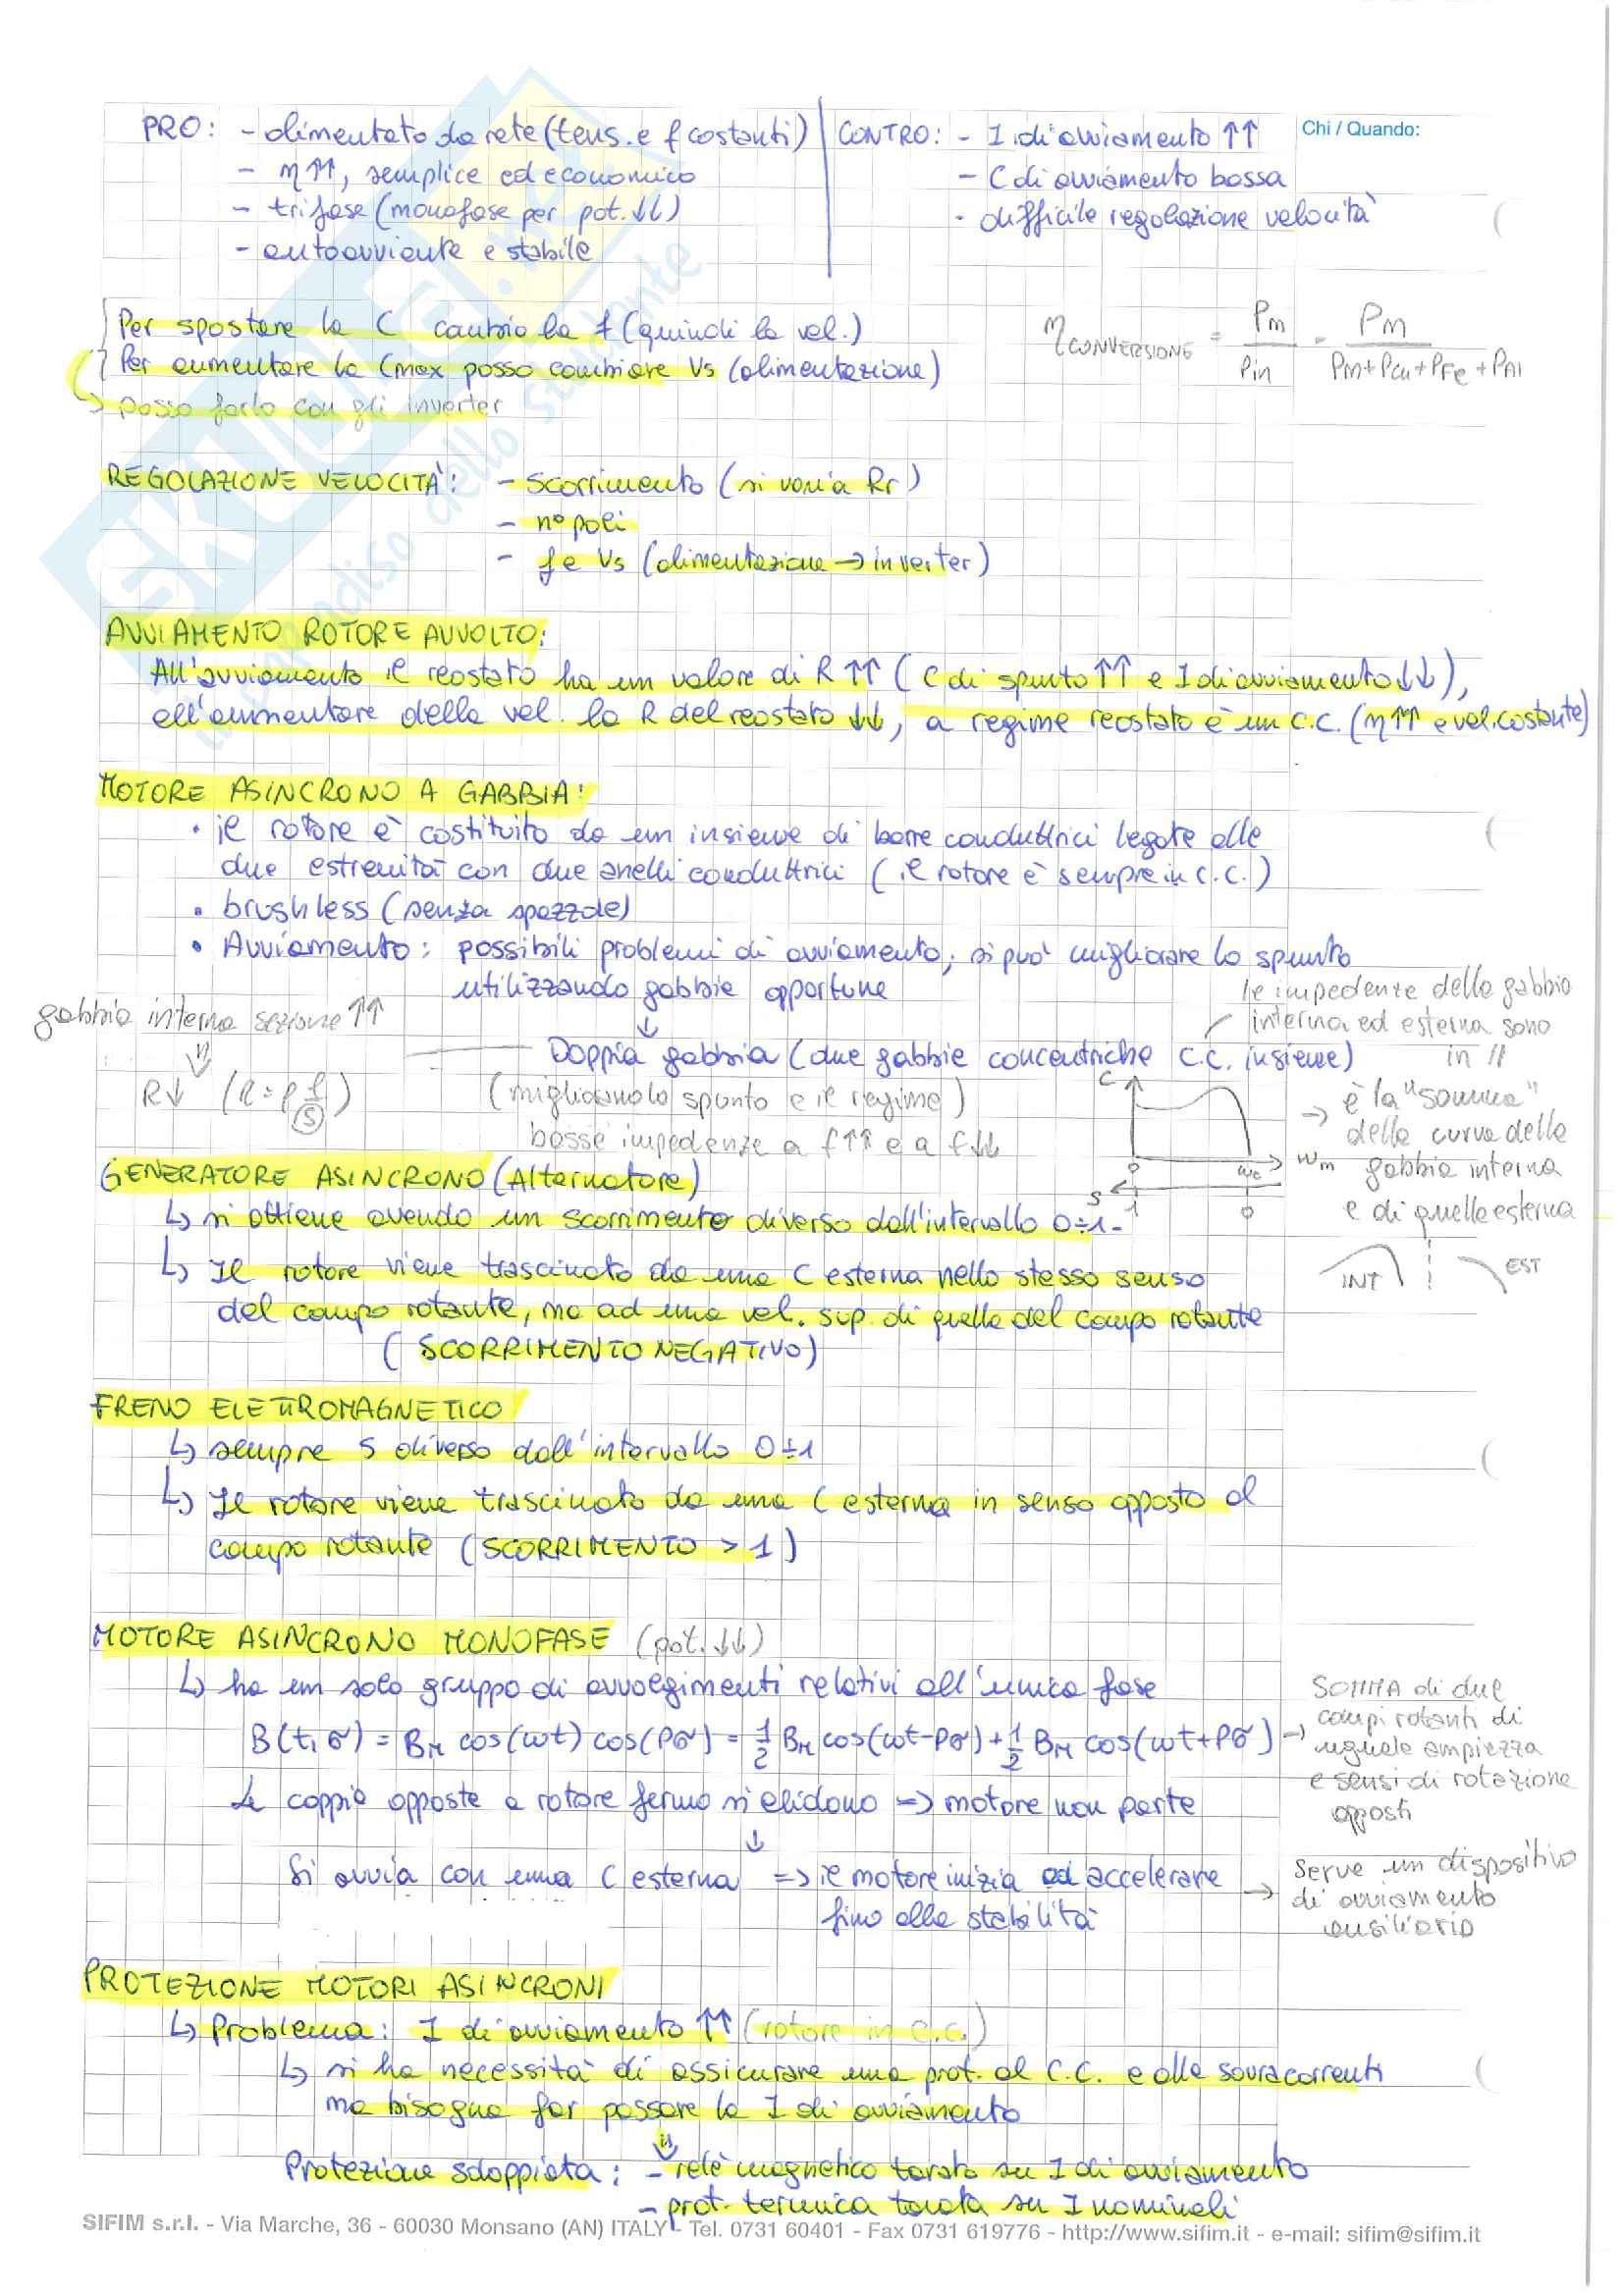 PRO: - alimentato da rete (tens. e f costanti)
- η↑↑, semplice ed economico
- trifase (monofase per pot. ↓↓)
- autoavviante e stabile
CONTRO: - I di avviamento ↑↑
- C di avviamento bassa
- difficile regolazione velocità
Chi / Quando:
Per spostare la C cambio la f (quindi la vel.)
Per aumentare la Cmax posso cambiare Vs (alimentazione)
→ posso farlo con gli inverter
η CONVERSIONE = Pm / Pin = Pm / Pm + Pcu + PFe + PAI
REGOLAZIONE VELOCITÀ: - scorrimento (si varia Rr)
- n° poli
- f e Vs (alimentazione → inverter)
AVVIAMENTO ROTORE AVVOLTO:
All'avviamento il reostato ha un valore di R ↑↑ (C di spunto ↑↑ e I di avviamento ↓↓),
all'aumentare della vel. la R del reostato ↓↓, a regime reostato è un c.c. (η↑↑ e vel. costante)
MOTORE ASINCRONO A GABBIA:
• il rotore è costituito da un insieme di barre conduttrici legate alle
due estremità con due anelli conduttrici (il rotore è sempre in c.c.)
• brushless (senza spazzole)
• Avviamento: possibili problemi di avviamento, si può migliorare lo spunto
utilizzando gabbie opportune
↓
Doppia gabbia (due gabbie concentriche c.c. insieme)
(migliorano lo spunto e il regime)
basse impedenze a f↑↑ e a f↓↓
gabbia interna sezione ↑↑
⇓
R↓ (R = ρ l/S)
le impedenze della gabbia
interna ed esterna sono
in //
C
0 ωc ωm
s 1 0
→ è la "somma"
della curva della
gabbia interna
e di quella esterna
INT EST
GENERATORE ASINCRONO (Alternatore)
↳ si ottiene avendo un scorrimento diverso dall'intervallo 0÷1-
↳ Il rotore viene trascinato da una C esterna nello stesso senso
del campo rotante, ma ad una vel. sup. di quella del campo rotante
(SCORRIMENTO NEGATIVO)
FRENO ELETTROMAGNETICO
↳ sempre s diverso dall'intervallo 0÷1
↳ Il rotore viene trascinato da una C esterna in senso opposto al
campo rotante (SCORRIMENTO > 1)
MOTORE ASINCRONO MONOFASE (pot. ↓↓)
↳ ha un solo gruppo di avvolgimenti relativi all'unica fase
B(t, σ) = BM cos(ωt) cos(pσ) = 1/2 BM cos(ωt-pσ) + 1/2 BM cos(ωt+pσ) →
SOMMA di due
campi rotanti di
uguale ampiezza
e sensi di rotazione
opposti
Le coppie opposte a rotore fermo si elidono => motore non parte
↓
Si avvia con una C esterna => il motore inizia ad accelerare
fino alla stabilità
→ Serve un dispositivo
di avviamento
ausiliario
PROTEZIONE MOTORI ASINCRONI
↳ Problema: I di avviamento ↑↑ (rotore in c.c.)
↳ si ha necessità di assicurare una prot. al c.c. e alle sovracorrenti
ma bisogna far passare la I di avviamento
⇓
Protezione sdoppiata: - relè magnetico tarato su I di avviamento
- prot. termica tarata su I nominali
SIFIM s.r.l. - Via Marche, 36 - 60030 Monsano (AN) ITALY - Tel. 0731 60401 - Fax 0731 619776 - http://www.sifim.it - e-mail: sifim@sifim.it